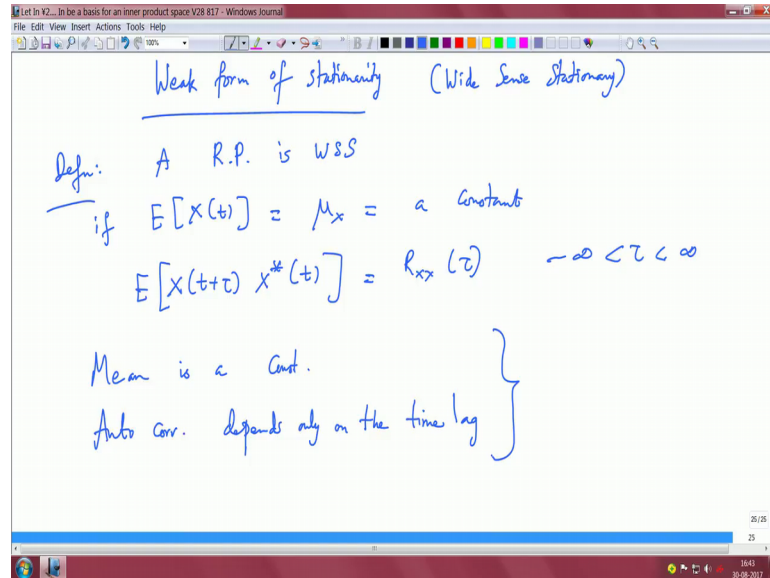 Let In ¥2... In be a basis for an inner product space V28 817 - Windows Journal
File Edit View Insert Actions Tools Help
100%
B I
Weak form of stationarity (Wide Sense Stationary)
Defn: A R.P. is WSS
if E[X(t)] = μ_x = a constant
E[X(t+τ) X*(t)] = R_xx (τ) -∞ < τ < ∞
Mean is a Const.
Auto Corr. depends only on the time lag
25/25
25
16:43
30-08-2017